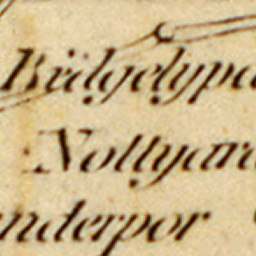 Bidgelypa
Nollyara
nderpor